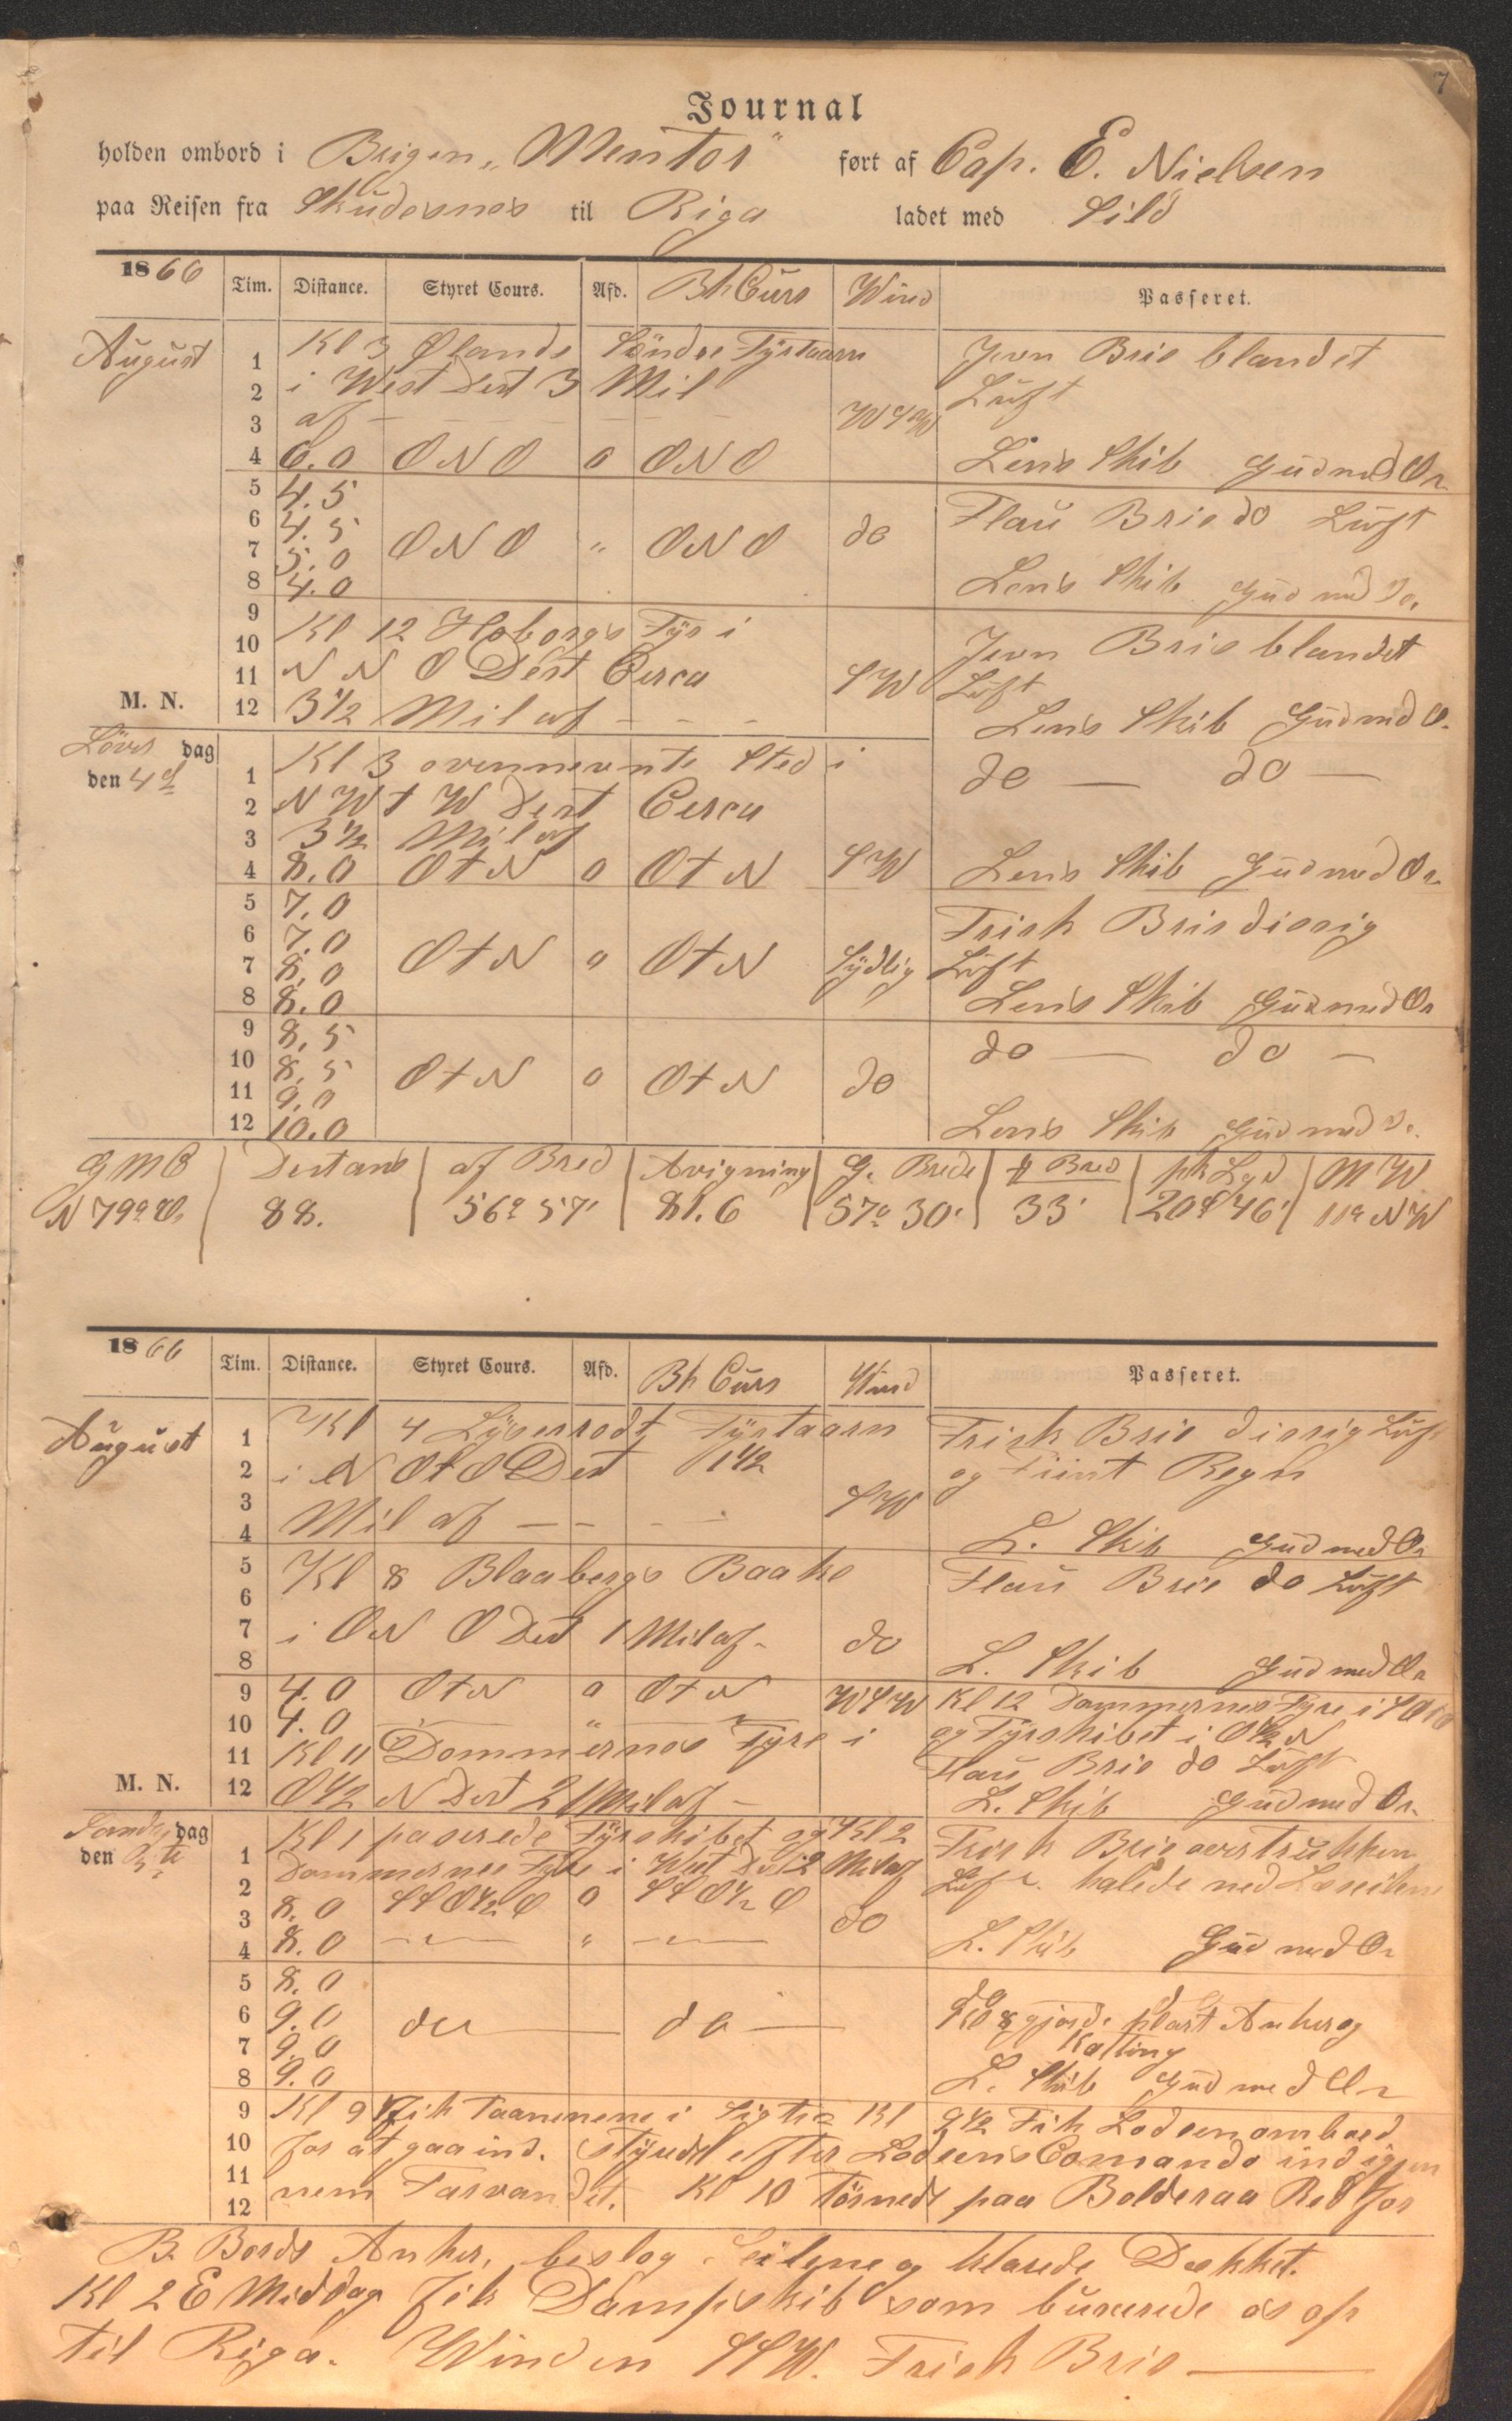 7
Journal
holden ombord i Brigen „Mentor" ført af Cap. E. Nielsen
paa Reisen fra Skudesnes til Riga ladet med Sild
1866 Tim. Distance. Styret Cours. Afd. Bh Curs Wind Passeret.
August
1 Kl 3 Ølands Söndre Fyrtaarn Jevn Bris blandet
2 i West Dist 3 Mil Luft
3 af — — — — WSW
4 6.0 ONO 0 ONO Lens Skib Gud med Os
5 4.5 Flau Bris do Luft
6 4.5
7 5.0 ONO " ONO do
8 4.0 Lens Skib Gud med Os.
9 Kl 12 Hoborgs Fyr i
10 Jevn Bris blandet
11 NNO Dist Cerca SW Luft
M. N. 12 3½ Mil af - - - Lens Skib Gud med O.
Löver dag
den 4de
1 Kl 3 ovennevnte Sted i do — do —
2 NWtW Dist Cerca
3 3½ Mil af
4 8.0 OtN 0 OtN SW Lens Skib Gud med Os
5 7.0 Frisk Bris disig
6 7.0
7 8.0 OtN 0 OtN Sydlig Luft
8 8.0 Lens Skib Gud med Os
9 8.5 do — do —
10 8.5 OtN 0 OtN do
11 9.0
12 10.0 Lens Skib Gud med O.
GMC Distans af Bred Avigning G. Brede Bred pk Lgd MW
N 79° O. 88. 56° 57' 81.6 57° 30' 33' 20° 46' 11° NW
1866 Tim. Distance. Styret Cours. Afd. Bh Curs Wind Passeret.
August
1 Kl 4 Lyserrodt Fyrtaarn Frisk Bris disig Luft
2 i NOtO Dist 1½ og Fiint Regn
3 Mil af — — — — SW
4 L. Skib Gud med Os
5 Kl 8 Blaabergs Baake Flau Bris do Luft
6
7 i ONO Dist 1 Mil af - do
8 L. Skib Gud med Os
9 4.0 OtN 0 OtN WSW Kl 12 Dommernes Fyre i
10 4.0 — " — og Fyrskibet i O½N
11 Kl 11 Dommernes Fyre i Flau Bris do Luft
M. N. 12 O½N Dist 2 Mil af — L. Skib Gud med Os.
Sondag dag
den 5te
1 Kl 1 paserede Fyrskibet og Kl 2 Frisk Bris overtrukken
2 Dommernes Fyre i West Dist 2 Mil af Luft. halede ned Læseilene
3 8.0 SSO½O 0 SSO½O do
4 8.0 — " — L. Skib Gud med Os
5 8.0
6 9.0 do — do — do do
Kl 8 gjorde klart Anker og
7 9.0 Kætting
8 9.0 L. Skib Gud med Os
9 Kl 9 Fik Taarnene i Sigte Kl 9½ Fik Lodsen ombord
10 for at gaa ind. Styrede efter Lodsens Comando ind igjen
11 nem Farvandet. Kl 10 Törnede paa Bolderaa Red for
12
B. Bords Anker, beslog Seilene og klarede Dækket.
Kl 2 E Middag fik Dampskib som buxerede os op
til Riga. Winden SSW. Frisk Bris —